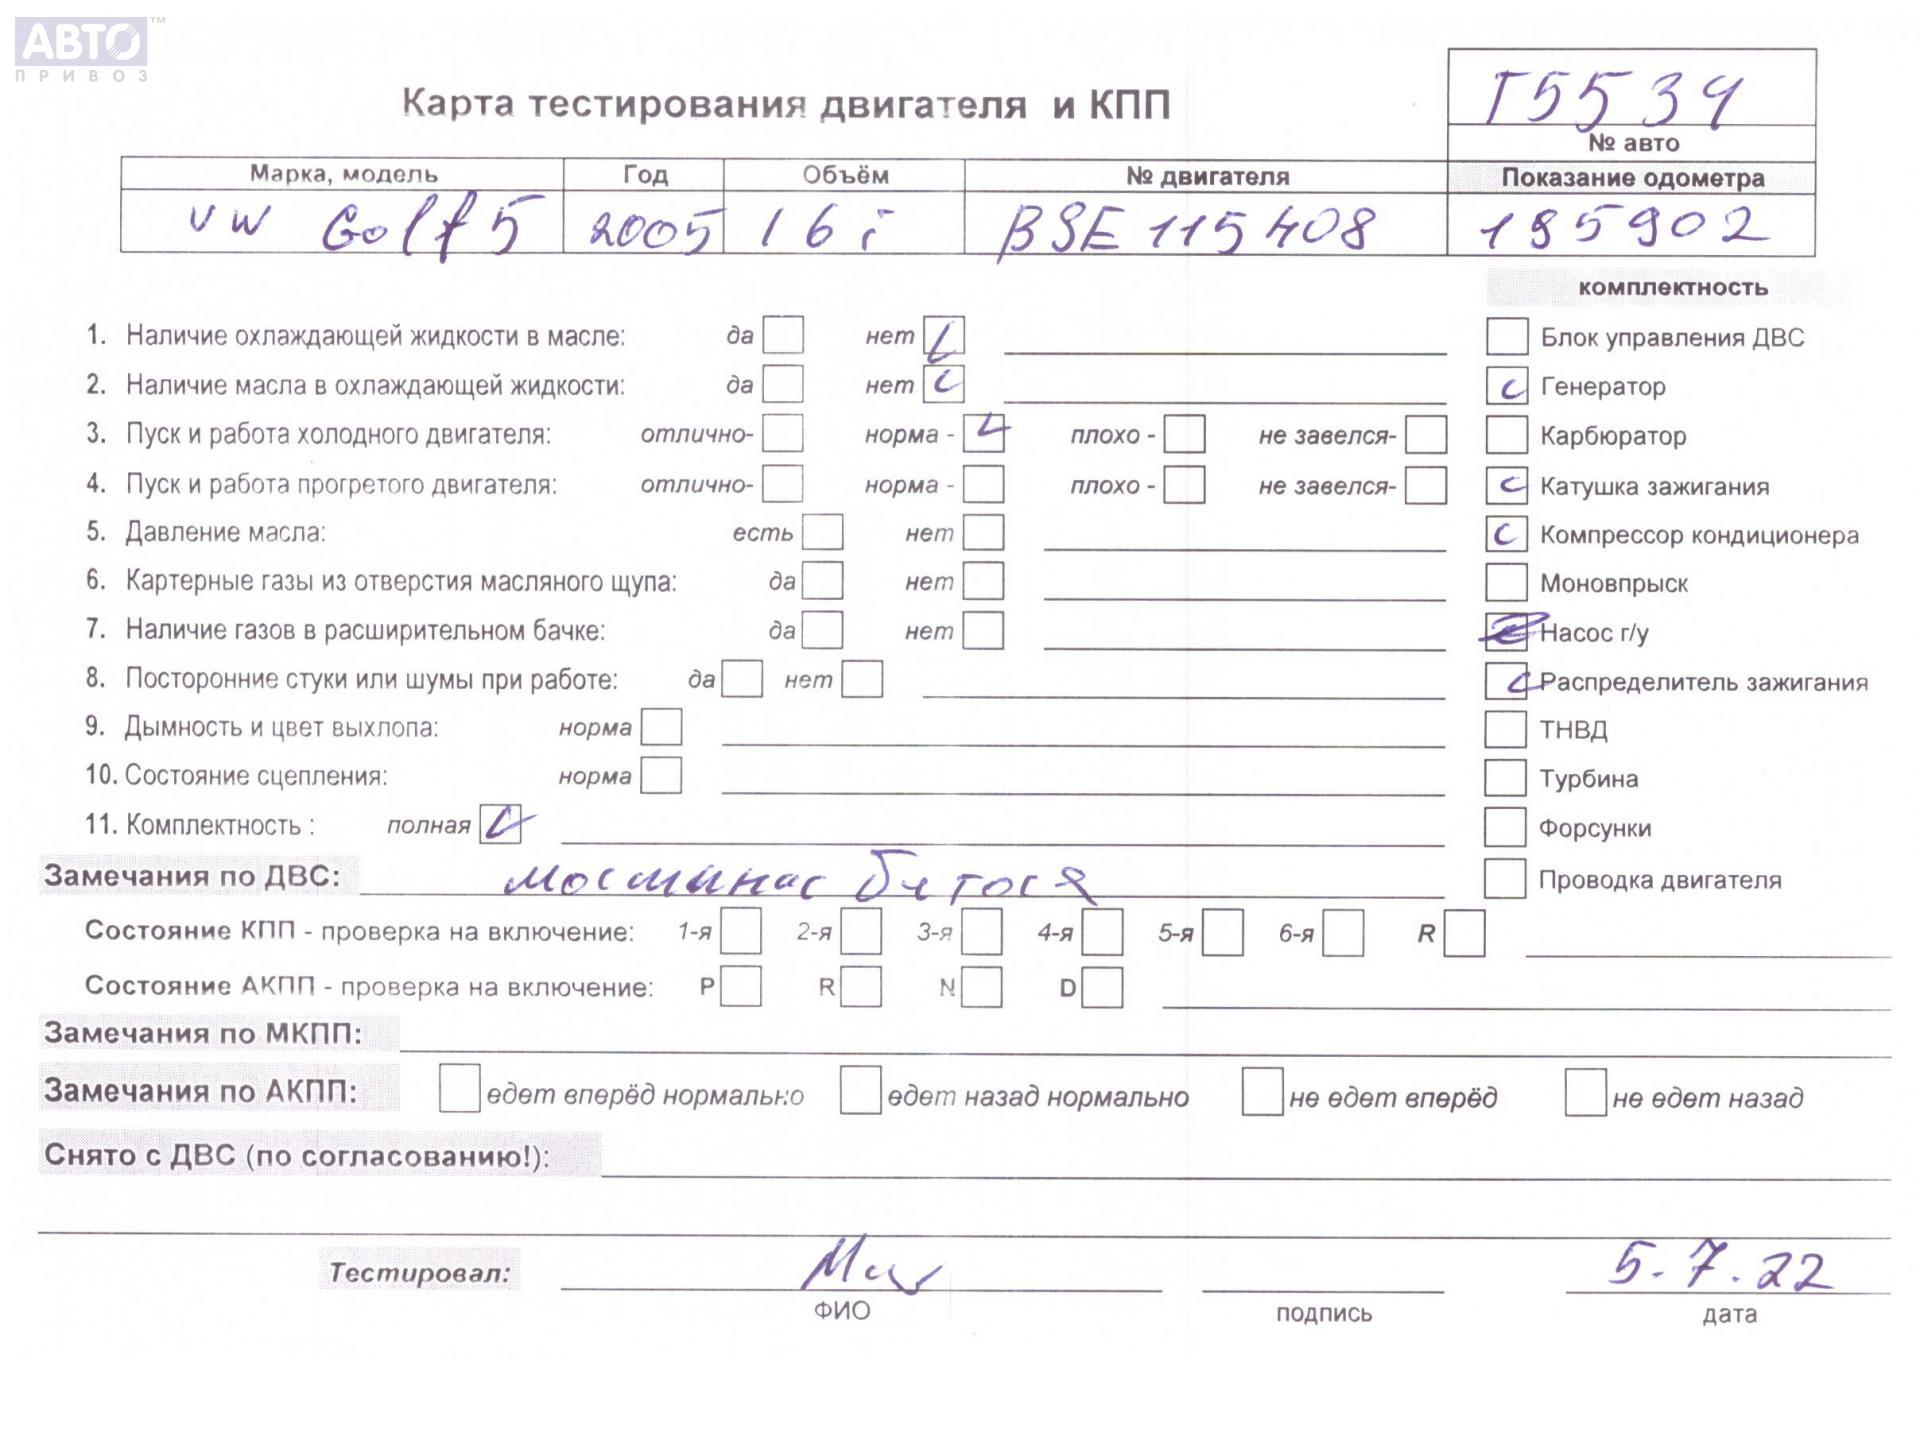 АВТО™
ПРИВОЗ
Карта тестирования двигателя и КПП
T5534
№ авто
Марка, модель Год Объём № двигателя Показание одометра
VW Golf 5 2005 16i BSE 115408 195902
комплектность
1. Наличие охлаждающей жидкости в масле: да нет Блок управления ДВС
2. Наличие масла в охлаждающей жидкости: да нет Генератор
3. Пуск и работа холодного двигателя: отлично- норма - плохо - не завелся- Карбюратор
4. Пуск и работа прогретого двигателя: отлично- норма - плохо - не завелся- Катушка зажигания
5. Давление масла: есть нет Компрессор кондиционера
6. Картерные газы из отверстия масляного щупа: да нет Моновпрыск
7. Наличие газов в расширительном бачке: да нет Насос г/у
8. Посторонние стуки или шумы при работе: да нет Распределитель зажигания
9. Дымность и цвет выхлопа: норма ТНВД
10. Состояние сцепления: норма Турбина
11. Комплектность : полная Форсунки
Замечания по ДВС: Проводка двигателя
Состояние КПП - проверка на включение: 1-я 2-я 3-я 4-я 5-я 6-я R
Состояние АКПП - проверка на включение: P R N D
Замечания по МКПП:
Замечания по АКПП: едет вперёд нормально едет назад нормально не едет вперёд не едет назад
Снято с ДВС (по согласованию!):
Тестировал: 5.7.22
ФИО подпись дата